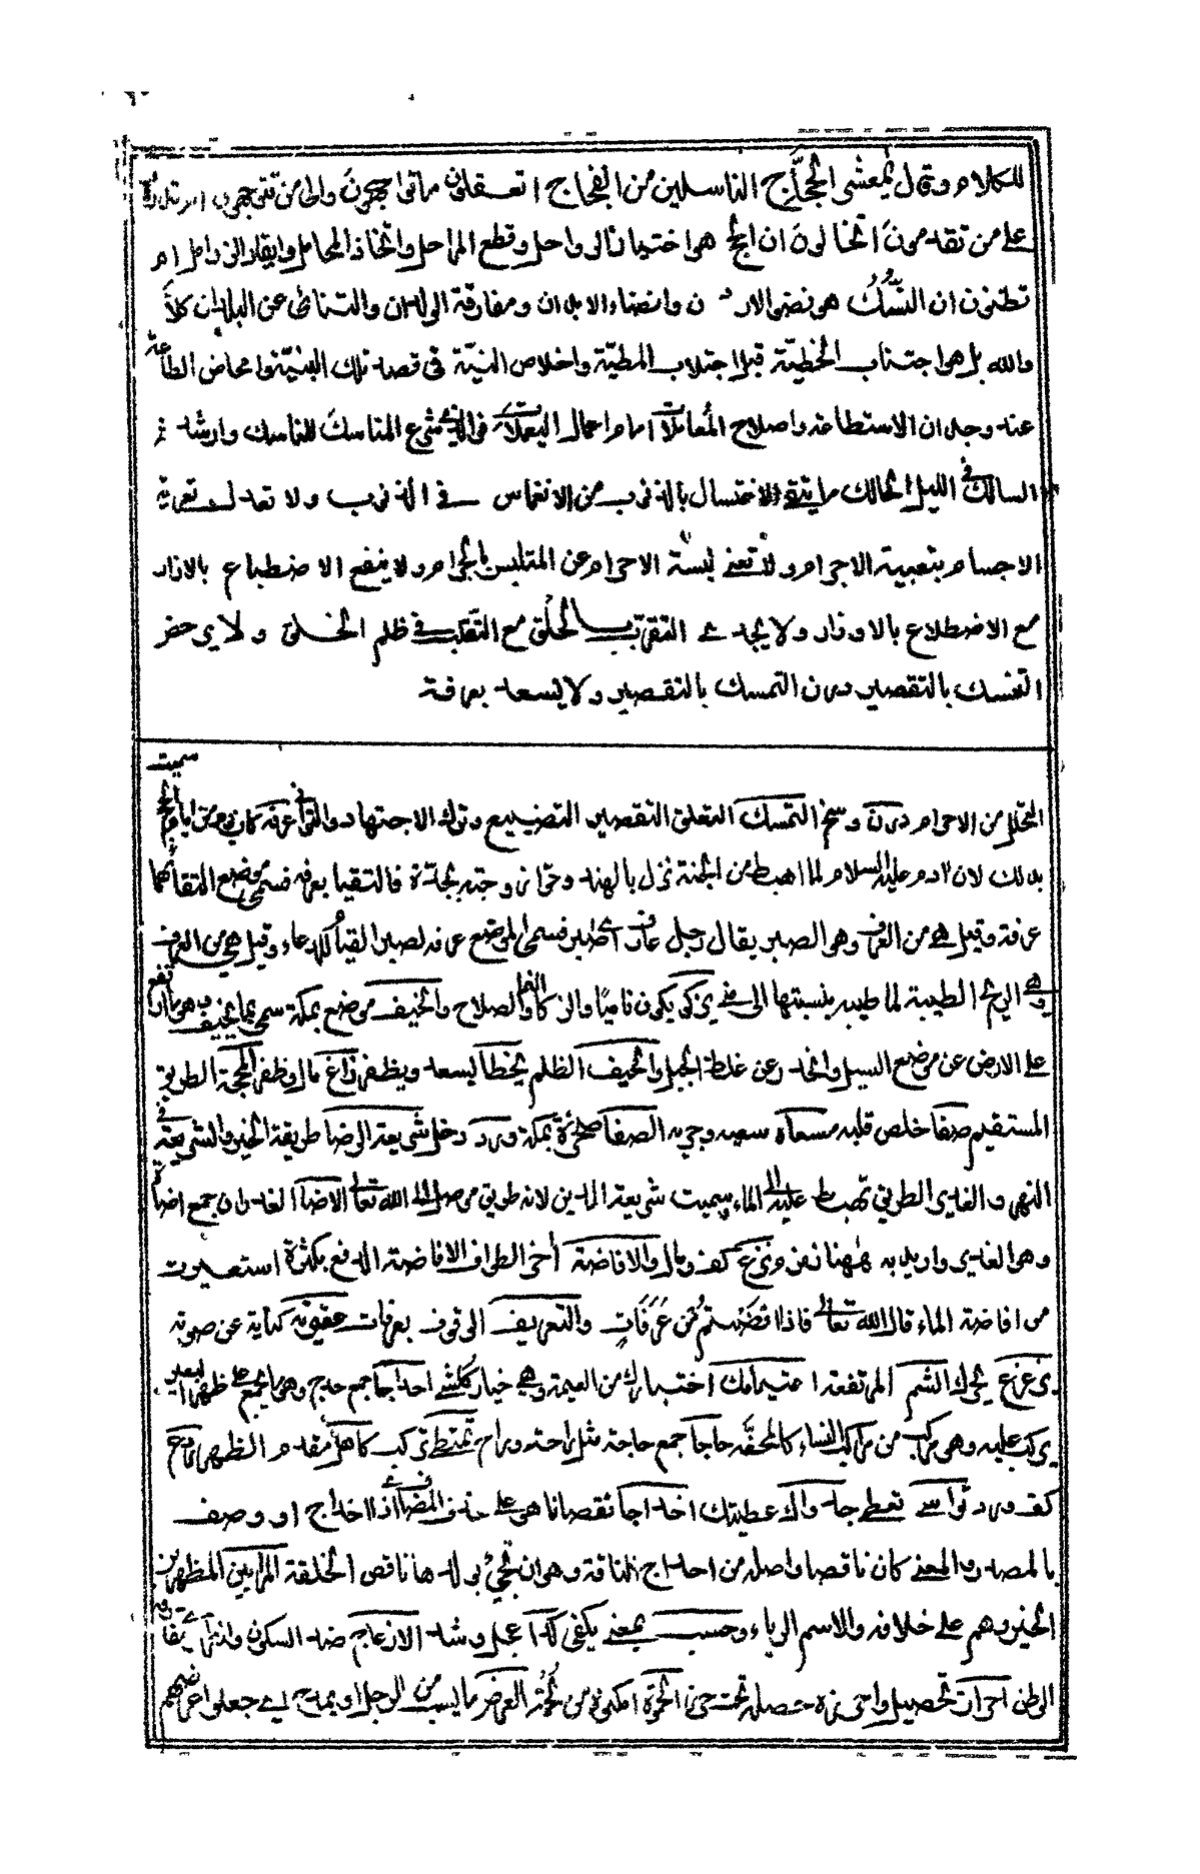 للكلام وقال يا معشر الحجّاج الناسلين من الفجاج اتعقلون ما تواجهون والى من تتوجهون ام تدرون
على من تقدمون اتخالون ان الحج هو اختيار الرواحل وقطع المراحل واتخاذ المحامل وايقار الزوامل ام
تظنون ان النسك هو نضو الاردن وانضاء الابدان ومفارقة الولدان والتنائى عن البلدان كلا
والله بل هو اجتناب الخطيّة قبل اجتلاب المطيّة واخلاص النيّة فى قصد تلك البنيّة وامحاض الطاعة
عند وجدان الاستطاعة واصلاح المعاملات امام اعمال اليعملات فوالذى شرع المناسك للناسك وارشد
السالك فى الليل الحالك ما ينقى الاغتسال بالذنوب من الانغماس فى الذنوب ولا تعدل تعرية
الاجسام بتعبية الاجرام ولا تغنى لبسة الاحرام عن المتلبس بالحرام ولا ينفع الاضطباع بالازار
مع الاضطلاع بالاوزار ولا يجدى التقرب بالحلق مع التقلب فى ظلم الخلق ولا يرحض
التنسك بالتقصير درن التمسك بالتقصير ولا يسعد بعرفة
سميت
التحلل من الاحرام درن وسخ التمسك التعلق التقصير التضييع وترك الاجتهاد والتوانى عرفة كان يوم من ايام الحج
بذلك لان ادم عليه السلام لما اهبط من الجنة نزل بالهند وحوا زوجته بجدة فالتقيا بعرفة فسمى موضع التقائهما
عرفة وقيل هى من العرف وهو الصبر يقال رجل عارف اى صابر فسمى الموضع عرفة لصبر القيام للدعاء وقيل هى من العرف
وهى الريح الطيبة لما طيبه بنسبتها الى منى يزكى يكون ناميًا والزكا والصلاح والخيف موضع بمكة سمى بما
على الارض عن موضع السيل وانحدر عن غلظ الجبل والحيف الظلم يحظا يسعد ويظفر زاغ مال وظفر المحجة الطريق
المستقيم صفا خلص قلبه مسعاه سعيه وجريه الصفا صخرة بمكة ورد دخل شريعة الرضا طريقة الخير والشريعة فى
النهر والغدير الطريق تهبط عليه الى الماء سميت شريعة الدين لانه طريق موصل الى الله تعالى الاضا الغدران جمع اضاة
وهو الغدير واريد به ههنا نفر ونزع كف ومال والافاضة اخر الطواف الافاضة الدفع بكثرة استعيرت
من افاضة الماء قال الله تعالى فاذا افضتم من عرفات والتعريف الوقوف بعرفات عقيرته كناية عن صوته
يزعزع يحرك الشم المرتفعة اعتيامك اختيارك من العيمة وهى خيار كل شى احداجا جمع حدج وهو ما يجمع على ظهر البعير
يركب عليه وهو مركب من مراكب النساء كالمحفة حاجا جمع حاجة مثل راحة وراح تمتطى تركب كاهلا مقدم الظهر ردع
كف ورد تواسى تعطى جدواك عطيتك اخداجا نقصانا هو على حذف المضاف اى ذا اخداج او وصف
بالمصدر والمعنى كان ناقصا واصله من اخداج الناقة وهو ان تجئ بولدها ناقص الخلقة المرائين المظهرين
الخير وهم على خلافه والاسم الرياء وحسب بمعنى يكفى كدا عجل وشد الازعاج ضد السكون
الوطن احراز تحصيل واحرزه حصله تحت حرز